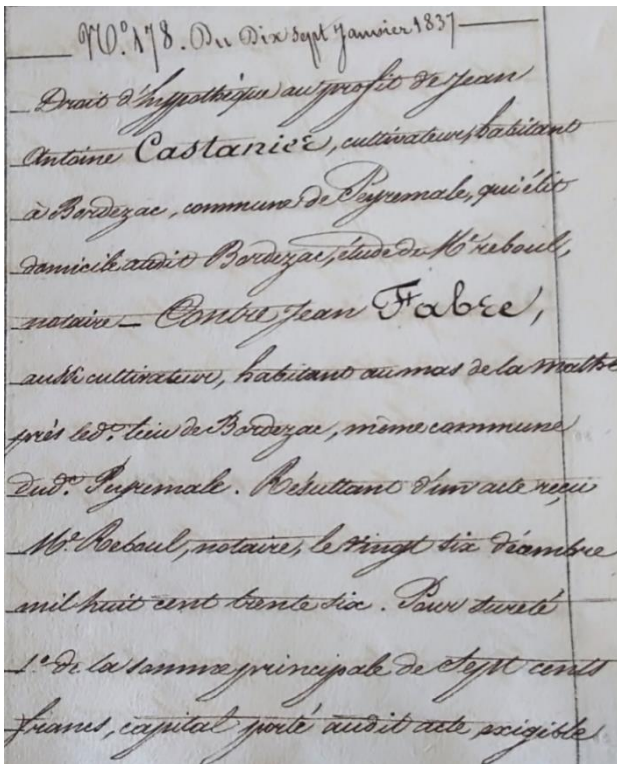 N.° 178. Du Dix Sept Janvier 1837
Droit d'hypothèque au profit de Jean
Antoine Castanier, cultivateur, habitant
à Bordezac, commune de Peyremale, qui élit
domicile audit Bordezac, étude de Me. reboul,
notaire — Contre Jean Fabre,
aussi cultivateur, habitant au mas de la mathe
près led.t lieu de Bordezac, même commune
dud.t Peyremale. Résultant d'un acte reçu
Me. Reboul, notaire, le vingt six décembre
mil huit cent trente six. Pour sureté
1.° de la somme principale de Sept cents
francs, capital porté audit acte, exigible